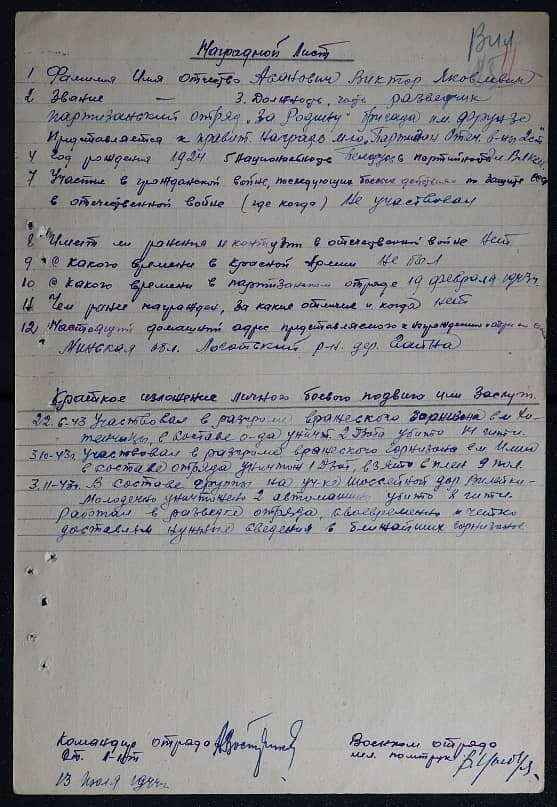 Вил
Наградной Лист
1 Фамилия Имя отчество Асанович Виктор Яковлевич
2 Звание — 3. Должность, часть разведчик
партизанский отряд „За Родину" бригада им. Фрунзе
Представляется к правит. награде м-лю „Партизан Отеч. в-ны 2 ст"
4 Год рождения 1924 5 Национальность Белорус 6 партийность чл. ВЛКСМ
7 Участие в гражданской войне, последующих боевых действиях по защите СССР
в отечественной войне (где когда) Не участвовал
8 Имеет ли ранения и контузии в отечественной войне нет
9 С какого времени в Красной Армии Не был
10 С какого времени в партизанском отряде 19 февраля 1943 г.
11 Чем ранее награжден, за какие отличия и когда нет
12 Настоящий домашний адрес представляемого к награждению
Минская обл. р-н. дер.
Краткое изложение личного боевого подвига или Заслуг.
22.6.43 Участвовал в разгроме вражеского гарнизона в м.
в составе о-да уничт. 2 Дзота убито
3.10-43г. Участвовал в разгроме вражеского гарнизона в м. Илия
в составе отряда уничтож 1 Дзот, взято в плен 9 пол.
3.11-43г. В составе группы на уч-ке шоссейной дор. Вилейка-
Молодечно уничтожено 2 автомашины убито 8 гитл.
Работал в разведке отряда, своевременно и четко
доставлял нужные сведения в ближайших гарнизонов
Командир отряда
Ст. л-нт
Военком отряда
мл. политрук
13 Июля 1944г.